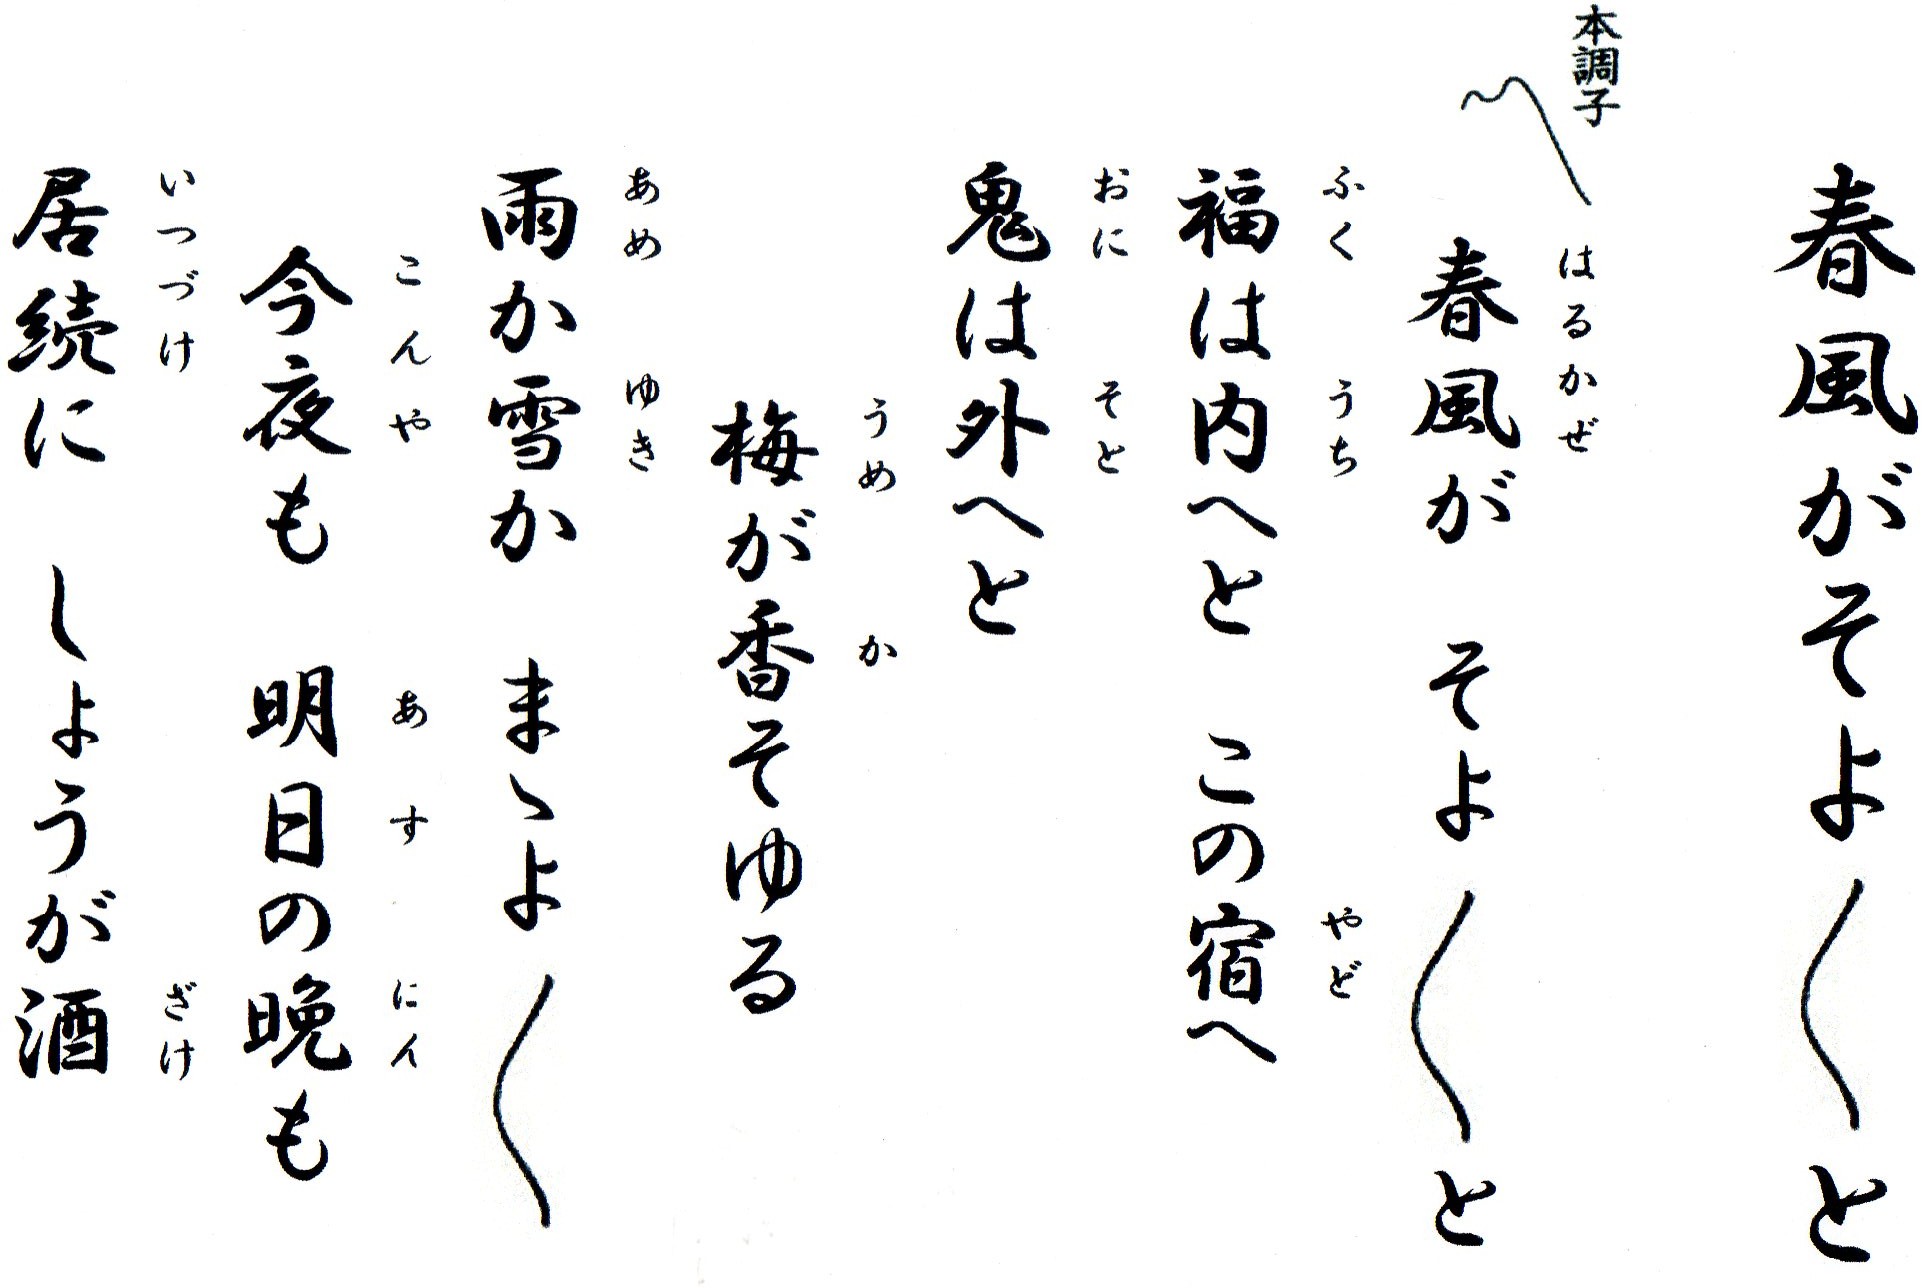 春風がそよ〳〵と
本調子
〽春風が　そよ〳〵と
はるかぜ
福は内へと　この宿へ
ふく　うち　やど
鬼は外へと
おに　そと
梅が香そゆる
うめ　か
雨か雪か　まゝよ〳〵
あめ　ゆき
今夜も　明日の晩も
こんや　あす　にん
居続に　しょうが酒
いつづけ　ざけ